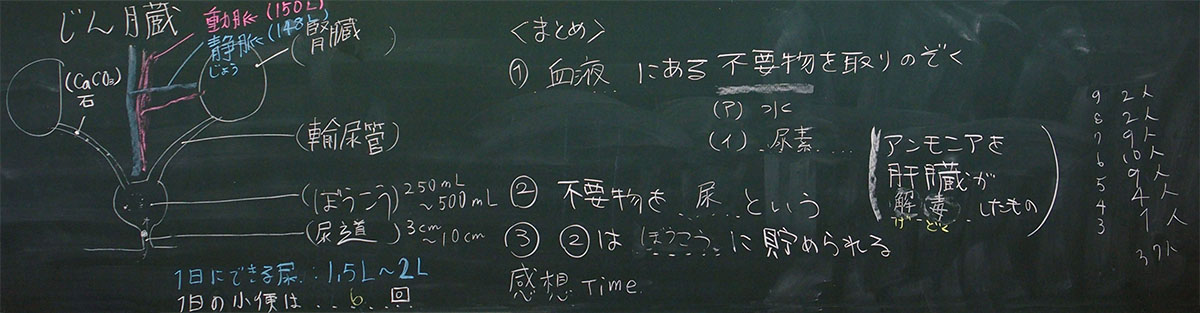 じん臓
動脈(150L)
静脈(148L)
じょう
(腎臓)
(CaCO3)
石
(輸尿管)
(ぼうこう) 250mL~500mL
(尿道) 3cm~10cm
1日にできる尿…1.5L~2L
1日の小便は……6 回
<まとめ>
① 血液 にある 不要物を取りのぞく
(ア) 水
(イ) 尿素
(アンモニアを
肝臓が
解毒 したもの)
げ どく
② 不要物を 尿 という
③ ②は ぼうこう に貯められる
感想 Time
9 2人
8 2人
7 9人
6 10人
5 9人
4 4人
3 1人
37人